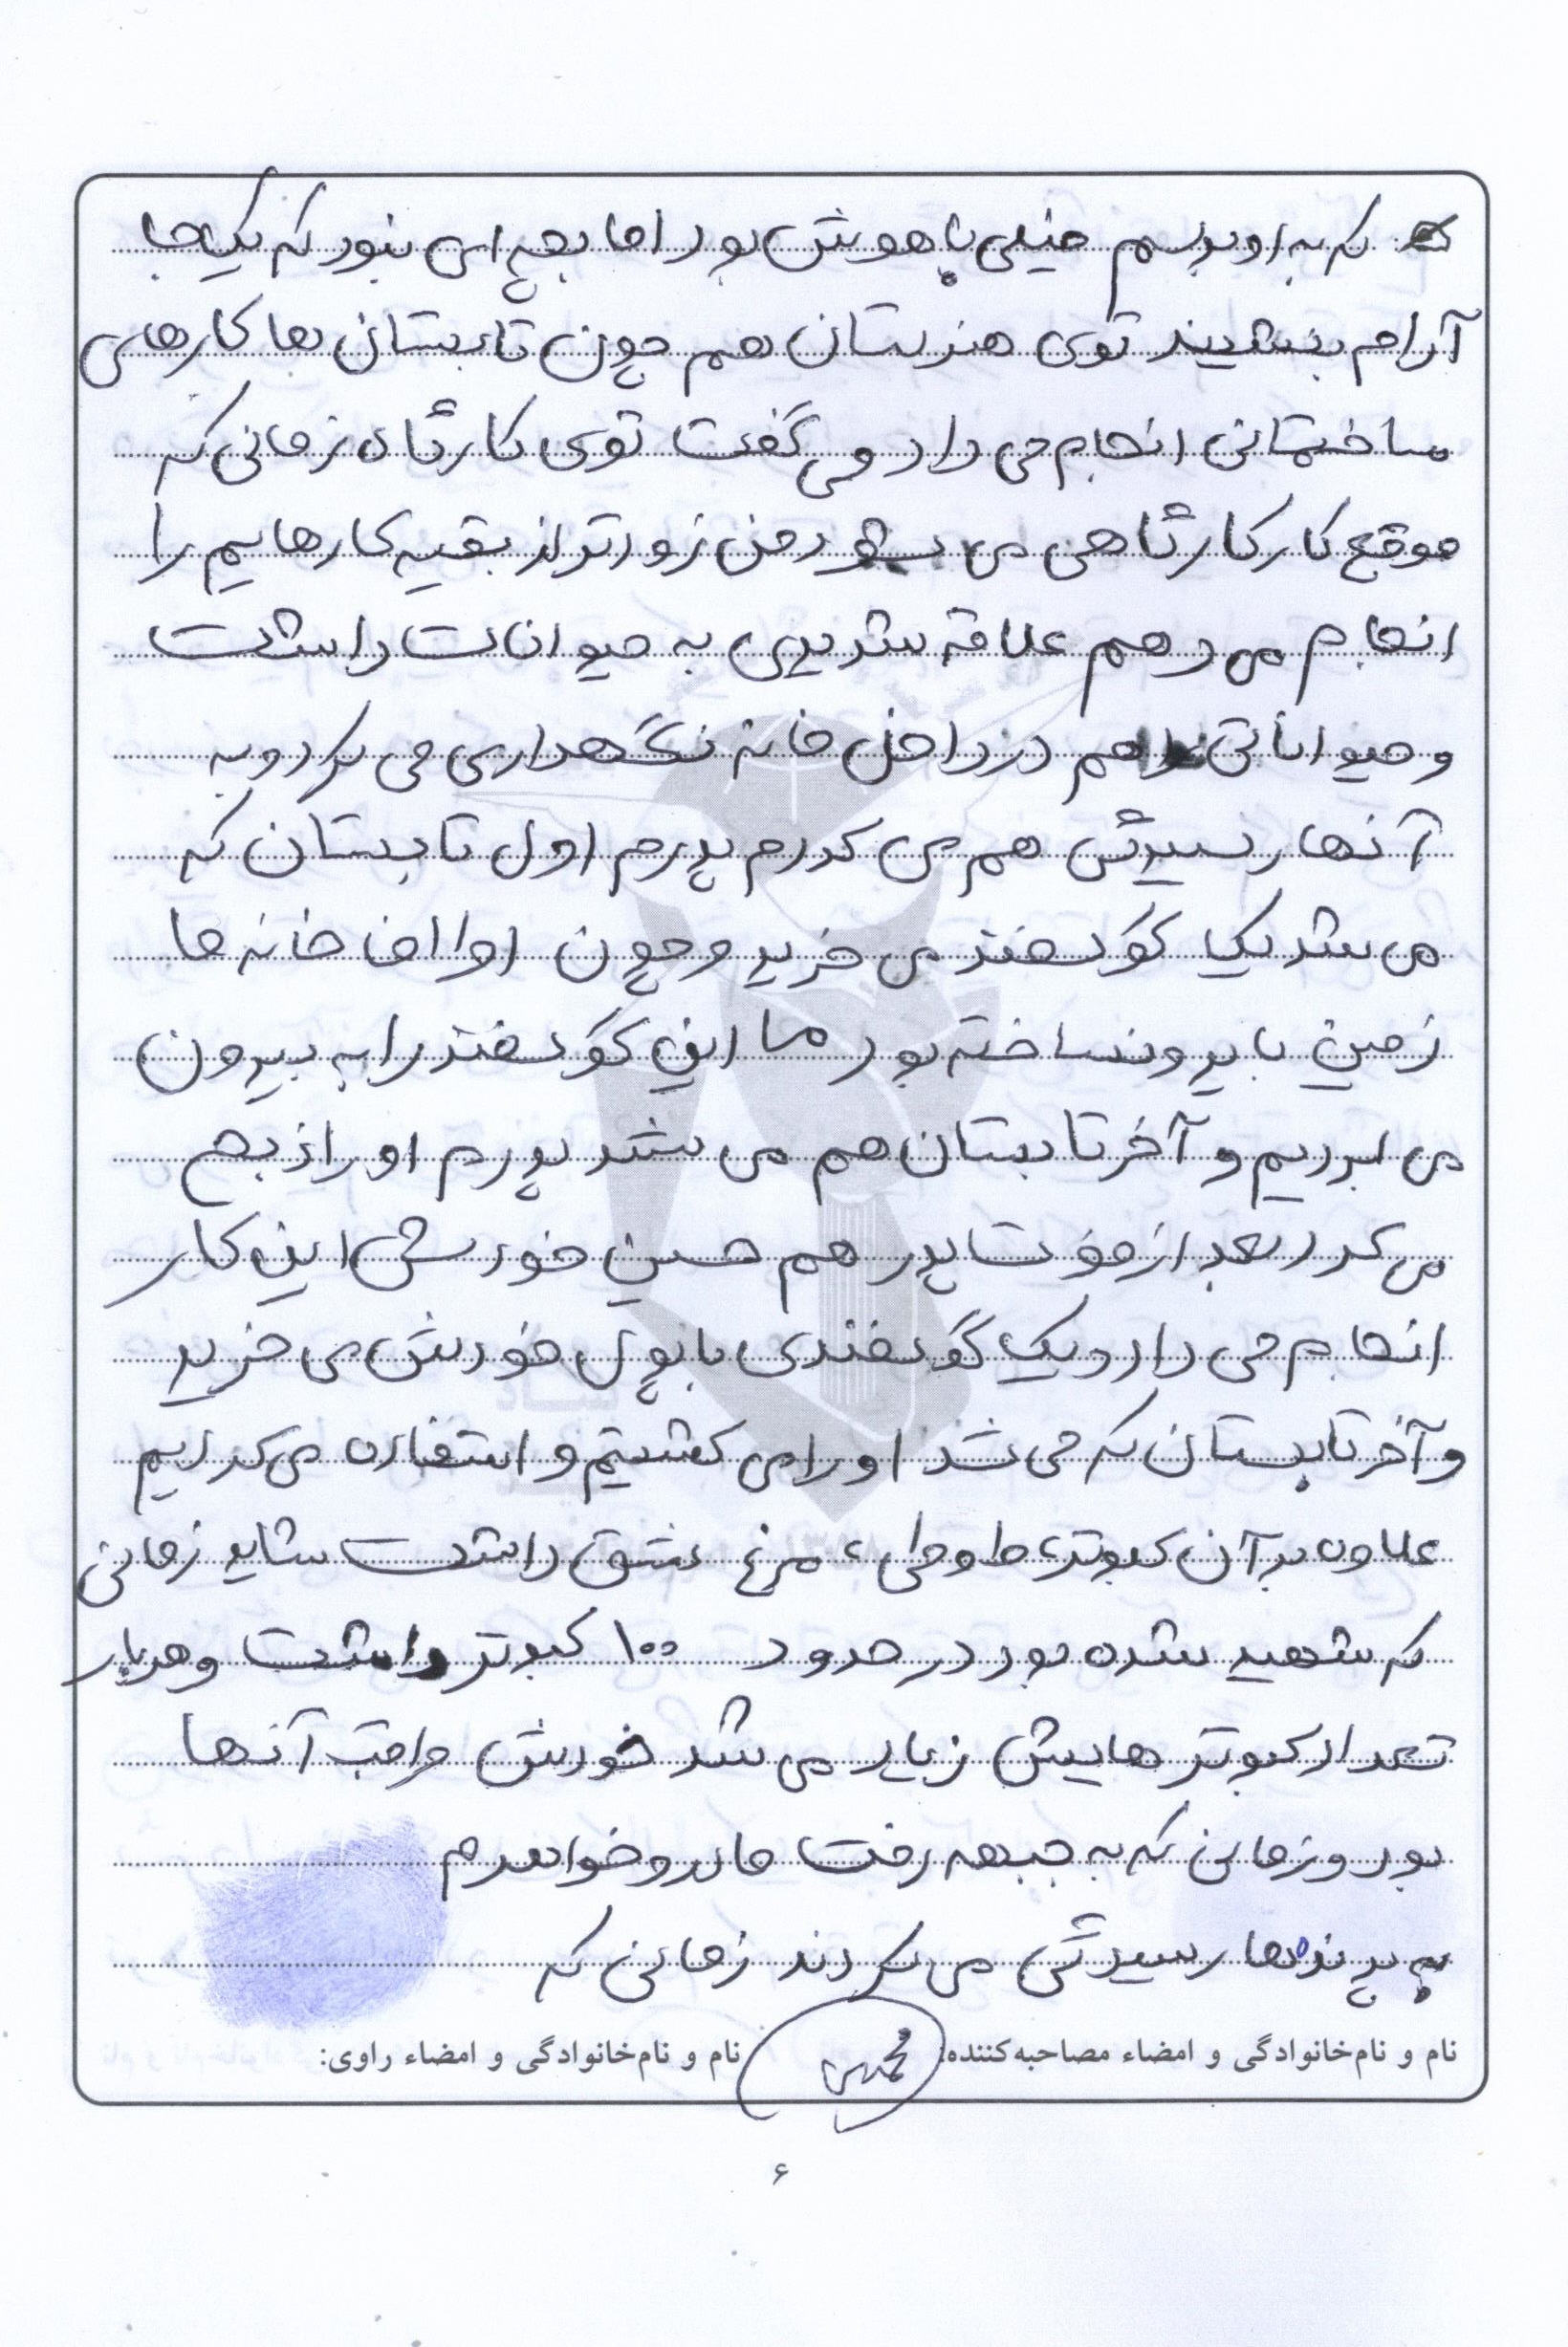 که به او برسم خیلی باهوش بود اما بچه ای نبود که یکجا
آرام بنشیند توی هنرستان هم چون تابستان ها کارهای
ساختمانی انجام می داد و می گفت توی کارگاه زمانی که
موقع کار کارگاهی می شود من زودتر از بقیه کارهایم را
انجام می دهم علاقه شدیدی به حیوانات داشت
و حیواناتی هم در داخل خانه نگهداری می کرد و به
آنها رسیدگی هم می کردم پدرم اول تابستان که
می شد یک گوسفند می خرید و چون اطراف خانه ما
زمین بایر و نساخته بود ما این گوسفند را به بیرون
می بردیم و آخر تابستان هم می شد پدرم او را ذبح
می کرد بعد از فوت پدر هم حسین خودش این کار
انجام می داد و یک گوسفندی با پول خودش می خرید
و آخر تابستان که می شد او را می کشتیم و استفاده می کردیم
علاوه بر آن کبوتر، طوطی، مرغ عشق داشت شاید زمانی
که شهید شده بود در حدود ۱۰۰ کبوتر داشت و هربار
تعداد کبوتر هایش زیاد می شد خودش مراقب آنها
بود و زمانی که به جبهه رفت مادر و خواهرم
به پرنده ها رسیدگی می کردند زمانی که
نام و نام‌خانوادگی و امضاء مصاحبه‌کننده:
نام و نام‌خانوادگی و امضاء راوی:
۶